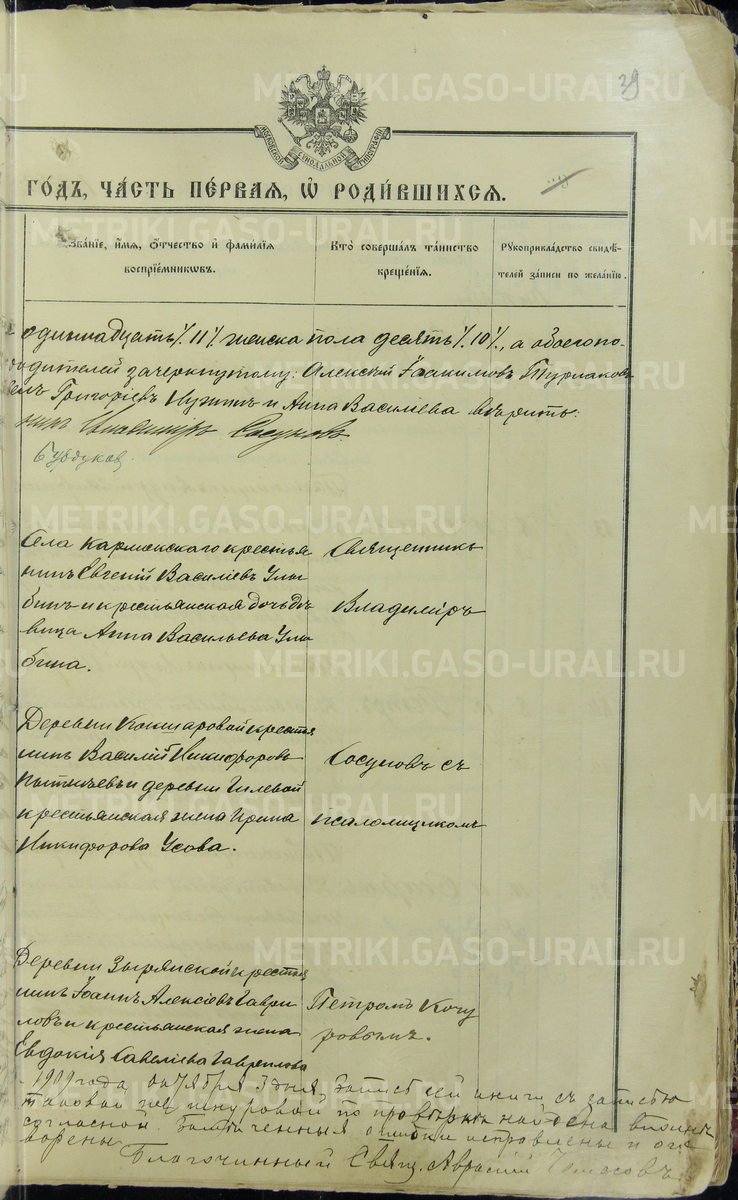 39
МОСКОВСКОЙ СѴНОДАЛЬНОЙ ТИПОГРАФІИ
ГОДЪ, ЧАСТЬ ПЕРВАЯ, Ѡ РОДИВШИХСЯ.
Званіе, имя, отчество и фамилія воспріемниковъ.
Кто совершалъ таинство крещенія.
Рукоприкладство свидѣтелей записи по желанію.
одиннадцать /. 11 /. женска пола десять /. 10 /., а обоего по-
родителей зачеркнутому: Алексѣй Іоакимовъ Турлаковъ
Григорьевъ и Анна Васильева вѣрить:
Владимиръ Сосуновъ
Села Кармакскаго крестья
нинъ Евгеній Васильевъ Улы
бинъ и крестьянская дочь дѣ
вица Анна Васильева Улы
бина.
Священникъ
Владиміръ
Деревни Кокшаровой крестья
нинъ Василій Никифоровъ
и деревни Гилевой
крестьянская жена Ирина
Никифорова Усова.
Сосуновъ съ
псаломщикомъ
Деревни Зырянской крестья
нинъ Іоаннъ Алексіевъ Гаври
ловъ и крестьянская жена
Евдокія Савеліева Гаврилова
Петромъ Кочу
ровымъ.
1909 года октября 3 дня запись сей книги съ записью
таковой же шнуровой по провѣркѣ найдена вполнѣ
согласной. Замѣченныя ошибки исправлены и ого
ворены
Благочинный Свящ.
METRIKI.GASO-URAL.RU